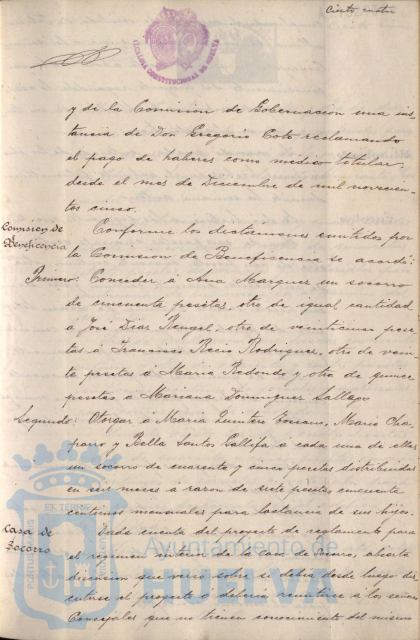 Ciento cuatro
ALCALDIA CONSTITUCIONAL DE HUELVA
y de la Comision de Gobernacion una ins
tancia de Don Gregorio Coto reclamando
el pago de haberes como medico titular
desde el mes de Diciembre de mil novecien
tos cinco.
Comision de
Beneficencia
Conforme los dictamenes emitidos por
la Comision de Beneficencia se acordó:
Primero: Conceder á Ana Marquez un socorro
de cincuenta pesetas, otro de igual cantidad
á José Diaz Rengel, otro de veinticinco pese
tas á Francisco Recio Rodriguez, otro de vein
te pesetas á Maria Redondo y otro de quince
pesetas á Mariana Dominguez Gallego
Segundo: Otorgar á Maria Quintero Toscano, Maria Cha
parro y Bella Santos á cada una de ellas
un socorro de cuarenta y cinco pesetas distribuidas
en seis meses á razon de siete pesetas cincuenta
centimos mensuales para lactancia de sus hijos.
Casa de
Socorro
Dada cuenta del proyecto de reglamento para
el regimen interior de la Casa de Socorro, abierta
discusion que versó sobre si debia desde luego dis
cutirse el proyecto ó deberia remitirse á los señores
Concejales que no tienen conocimiento del mismo
Ayuntamiento de
HUELVA